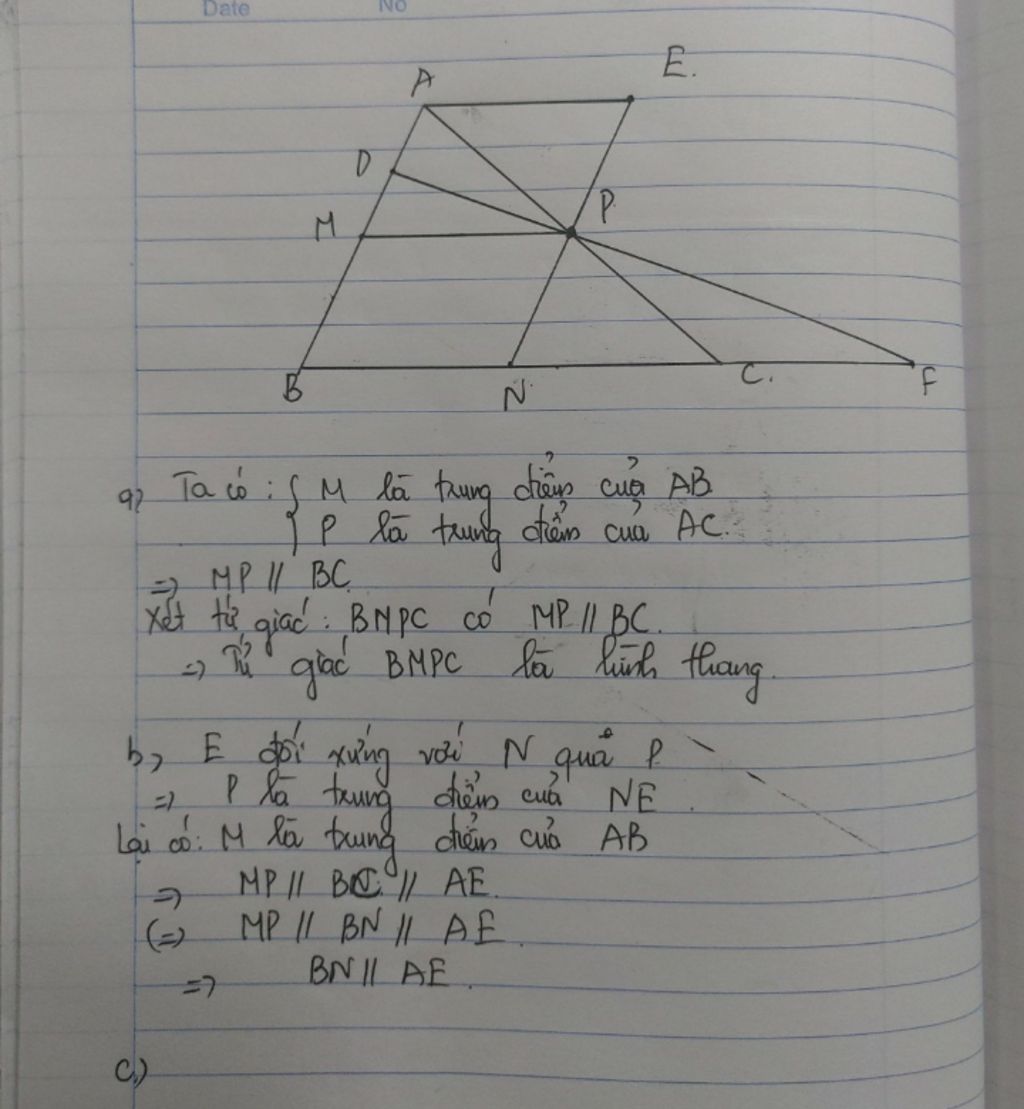 Date No
A E.
D
M P.
B N C. F
a, Ta có : { M là trung điểm của AB
P là trung điểm của AC.
=> MP // BC
Xét tứ giác : BMPC có MP // BC.
=> Tứ giác BMPC là hình thang.
b, E đối xứng với N qua P
=> P là trung điểm của NE .
Lại có : M là trung điểm của AB
=> MP // BC // AE.
(=) MP // BN // AE .
=> BN // AE .
c,)